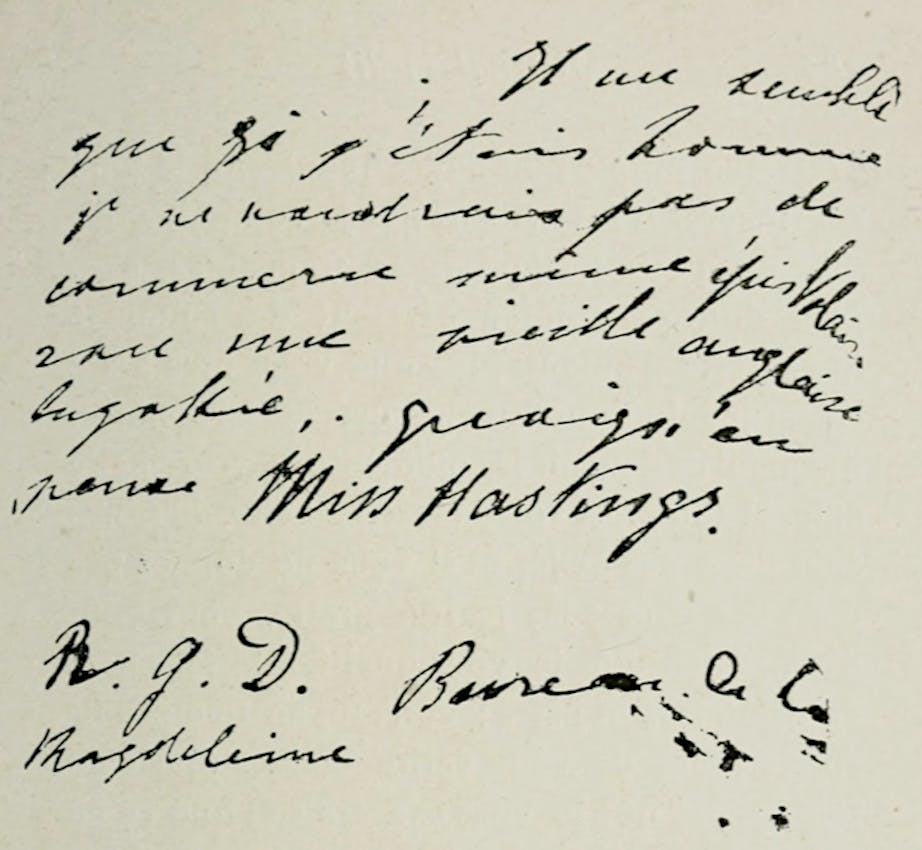 Il me semble
que si j'étais homme
je ne voudrais pas de
commerce même épistolaire
avec une vieille anglaise
en
pense Miss Hastings.
R. G. D. Bureau de la
Magdeleine